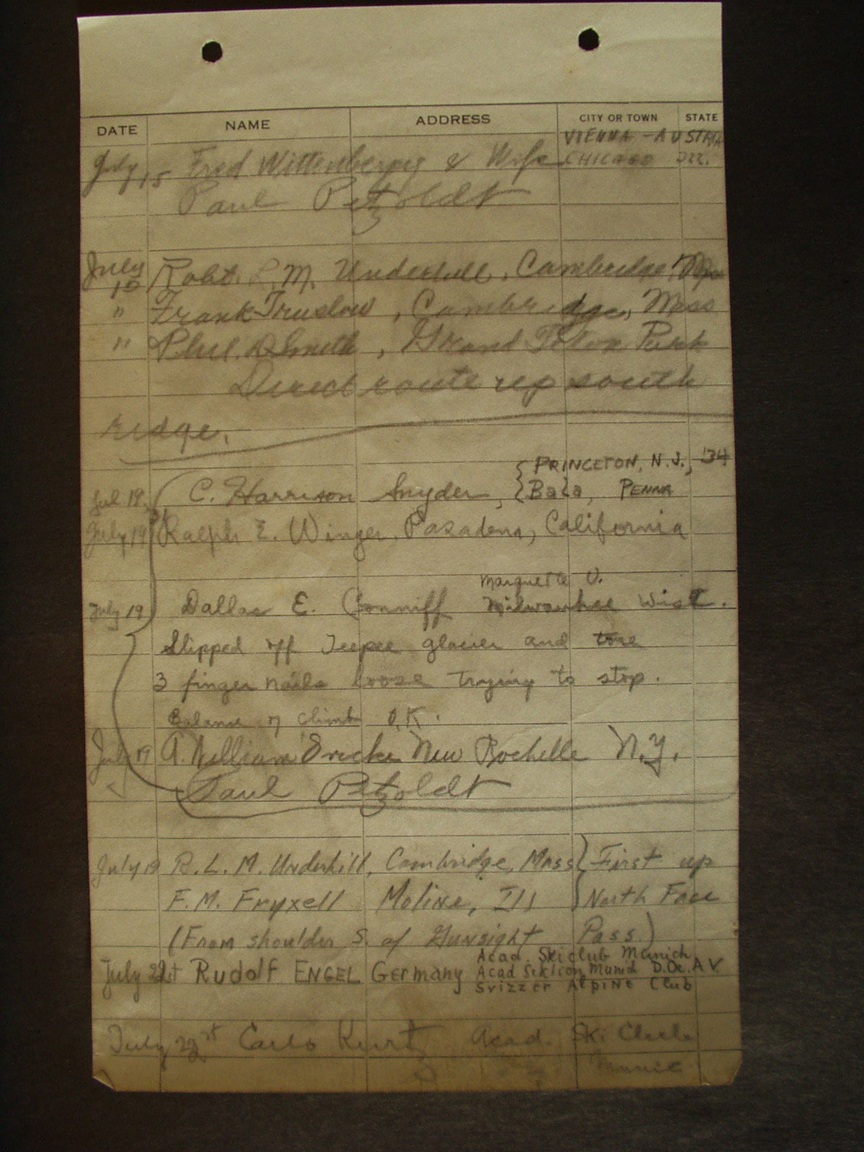 DATE NAME ADDRESS CITY OR TOWN STATE
VIENNA - AUSTRIA
July 15 Fred Wittenberger & Wife CHICAGO Ill.
Paul Petzoldt
July 15 Robt L. M. Underhill, Cambridge, Mass
" Frank Truslow, Cambridge, Mass
" Phil. D Smith, Grand Teton Park
Direct route up south
ridge.
PRINCETON, N.J., '34
Jul. 18, C. Harrison Snyder, Bala, PENNA
July 19 Ralph E. Winger, Pasadena, California
Marquette U.
July 19 Dallas E. Conniff Milwaukee Wisc.
Slipped off Teepee glacier and tore
3 finger nails loose trying to stop.
Balance of climb O.K.
July 19 A. William New Rochelle N.Y.
Paul Petzoldt
July 19 R. L. M. Underhill, Cambridge, Mass } First up
F. M. Fryxell Moline, Ill } North Face
(From shoulder S. of Gunsight Pass)
Acad. Skiclub Munich
July 21st RUDOLF ENGEL Germany Acad Sektion D.Oe.A V
Svizzer Alpine Club
July Carlo Kurtz Acad. Ski